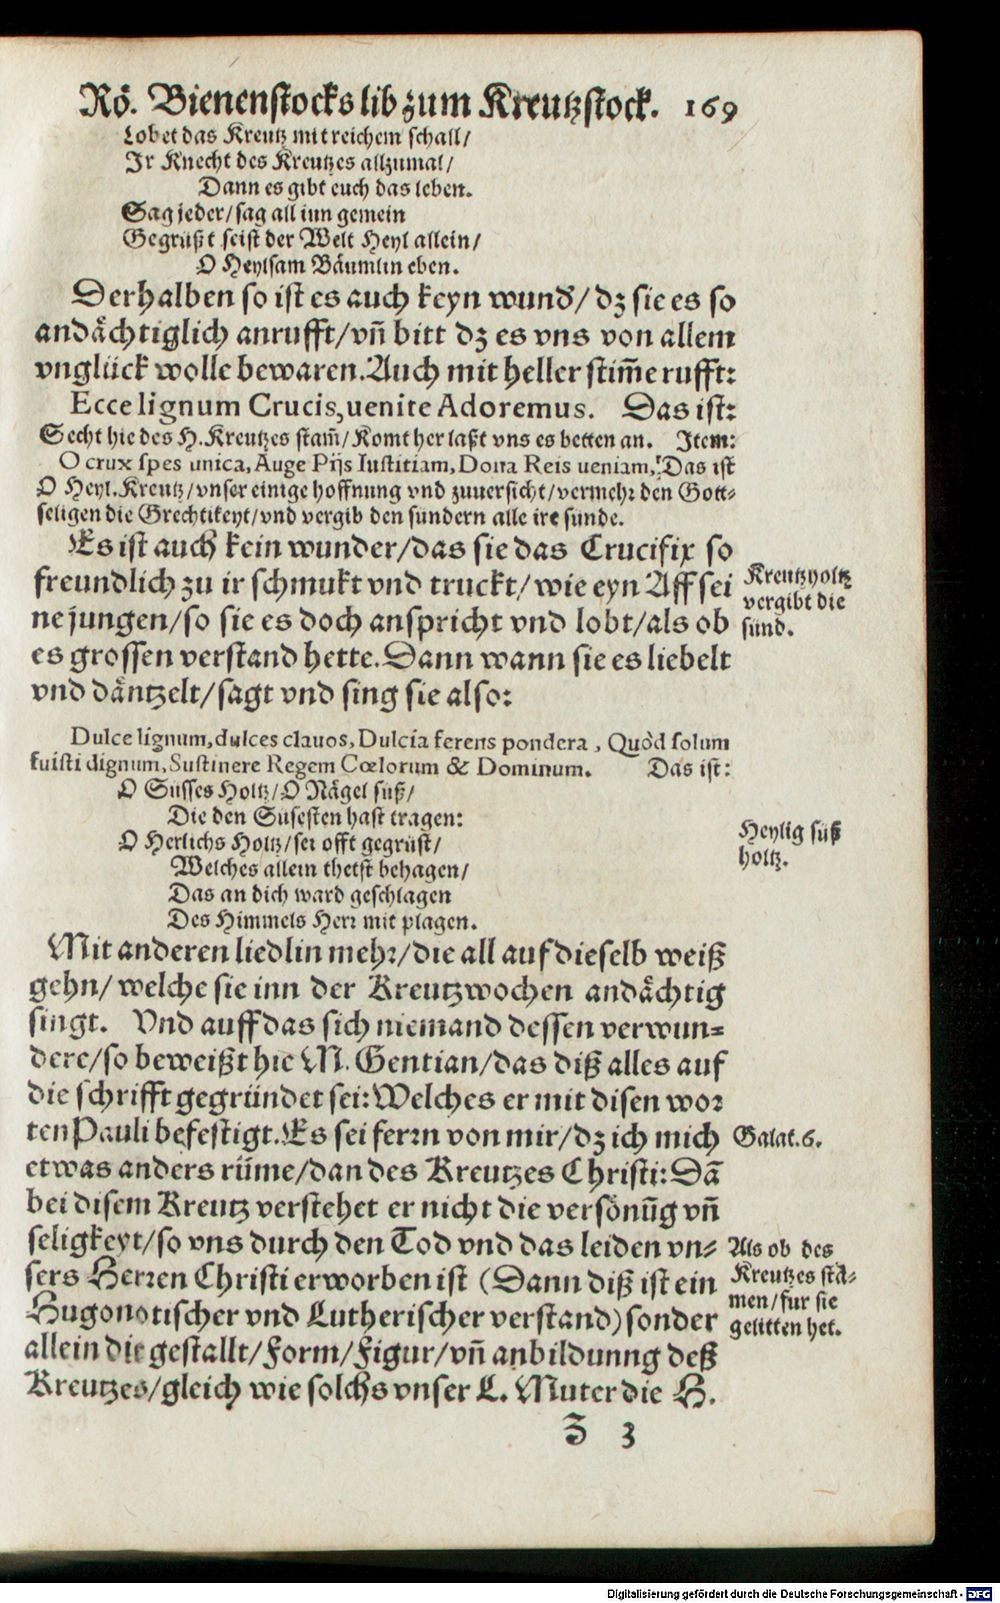 Rö. Bienenstocks lib zum Kreutzstock. 169
Lobet das Kreutz mit reichem schall/
Ir Knecht des Kreutzes allzumal/
Dann es gibt euch das leben.
Sag jeder/sag all inn gemein
Gegrüßt seist der Welt Heyl allein/
O Heylsam Bäumlin eben.
Derhalben so ist es auch keyn wund'/dz sie es so
andächtiglich anrufft/vñ bitt dz es vns von allem
vnglück wolle bewaren. Auch mit heller stim̃e rufft:
Ecce lignum Crucis, uenite Adoremus. Das ist:
Secht hie des H. Kreutzes stam̃/Komt her laßt vns es betten an. Item:
O crux spes unica, Auge Pijs Iustitiam, Dona Reis ueniam, Das ist
O Heyl. Kreutz/vnser einige hoffnung vnd zuuersicht/vermehr den Gott⸗
seligen die Grechtikeyt/vnd vergib den sündern alle ire sünde.
Es ist auch kein wunder/das sie das Crucifix so
freundlich zu ir schmukt vnd truckt/wie eyn Aff sei
ne jungen/so sie es doch anspricht vnd lobt/als ob
es grossen verstand hette. Dann wann sie es liebelt
vnd däntzelt/sagt vnd sing sie also:
Kreutzholtz
vergibt die
sünd.
Dulce lignum, dulces clauos, Dulcia ferens pondera, Quòd solum
fuisti dignum, Sustinere Regem Cœlorum & Dominum. Das ist:
O Süsses Holtz/O Nägel süß/
Die den Süsesten hast tragen:
O Herlichs Holtz/sei offt gegrüst/
Welches allein thetst behagen/
Das an dich ward geschlagen
Des Himmels Herr mit plagen.
Heylig süß
holtz.
Mit anderen liedlin mehr/die all auf dieselb weiß
gehn/welche sie inn der Kreutzwochen andächtig
singt. Vnd auff das sich niemand dessen verwun⸗
dere/so beweißt hie M. Gentian/das diß alles auf
die schrifft gegründet sei: Welches er mit disen wor
ten Pauli befestigt. Es sei ferrn von mir/dz ich mich
etwas anders rüme/dan des Kreutzes Christi: Dã
bei disem Kreutz verstehet er nicht die versönũg vñ
seligkeyt/so vns durch den Tod vnd das leiden vn⸗
sers Herren Christi erworben ist (Dann diß ist ein
Hugonotischer vnd Lutherischer verstand) sonder
allein die gestallt/Form/Figur/vñ anbildunng deß
Kreutzes/gleich wie solchs vnser L. Muter die H.
Galat. 6.
Als ob des
Kreutzes stä⸗
men/für sie
gelitten het.
Z 3
Digitalisierung gefördert durch die Deutsche Forschungsgemeinschaft - DFG